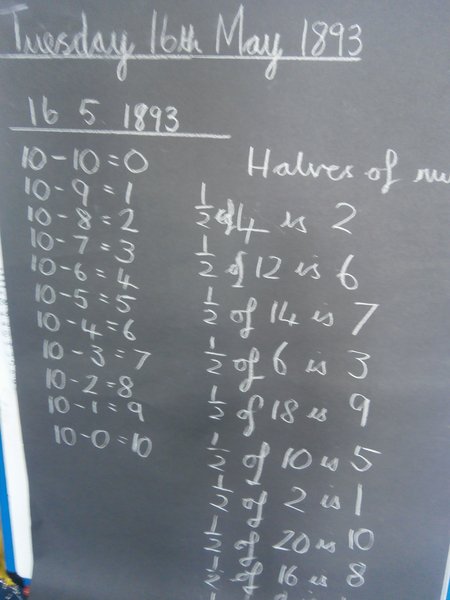 Tuesday 16th May 1893
16 5 1893
10 - 10 = 0
10 - 9 = 1
10 - 8 = 2
10 - 7 = 3
10 - 6 = 4
10 - 5 = 5
10 - 4 = 6
10 - 3 = 7
10 - 2 = 8
10 - 1 = 9
10 - 0 = 10
Halves of
½ of 4 is 2
½ of 12 is 6
½ of 14 is 7
½ of 6 is 3
½ of 18 is 9
½ of 10 is 5
½ of 2 is 1
½ of 20 is 10
½ of 16 is 8